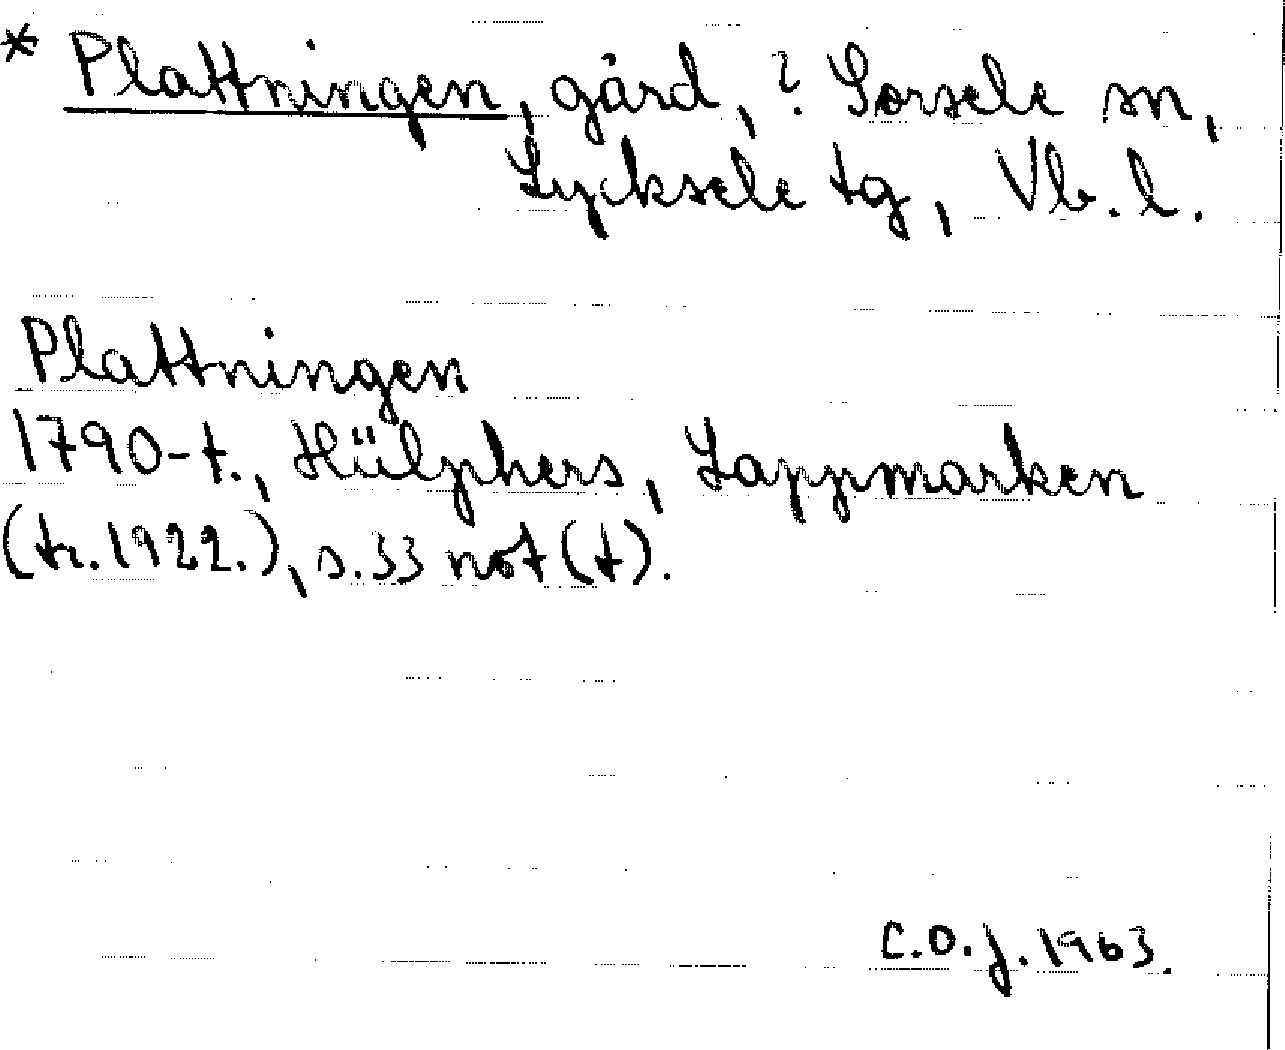 * Plattningen, gård, ? Sorsele sn,
Lycksele tg, Vb. l.
Plattningen
1790-t., Hülphers, Lappmarken
(tr. 1922.), s. 33 not (t).
C.O.J. 1963.